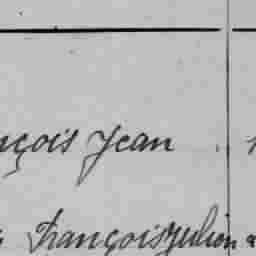 nçois Jean
François Julien